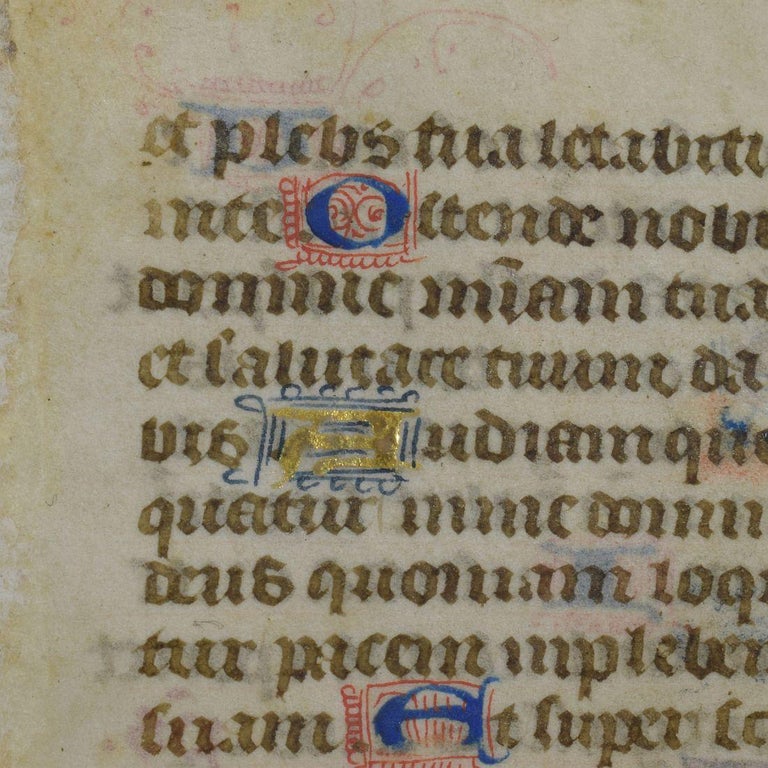 et plebs tua letabit
inte Ostende nobi
domine mīam tua
et salutare tuum da
vis Audiam que
quatur inme domi
deus quoniam loq
tur pacem inpleben
suam At super sc